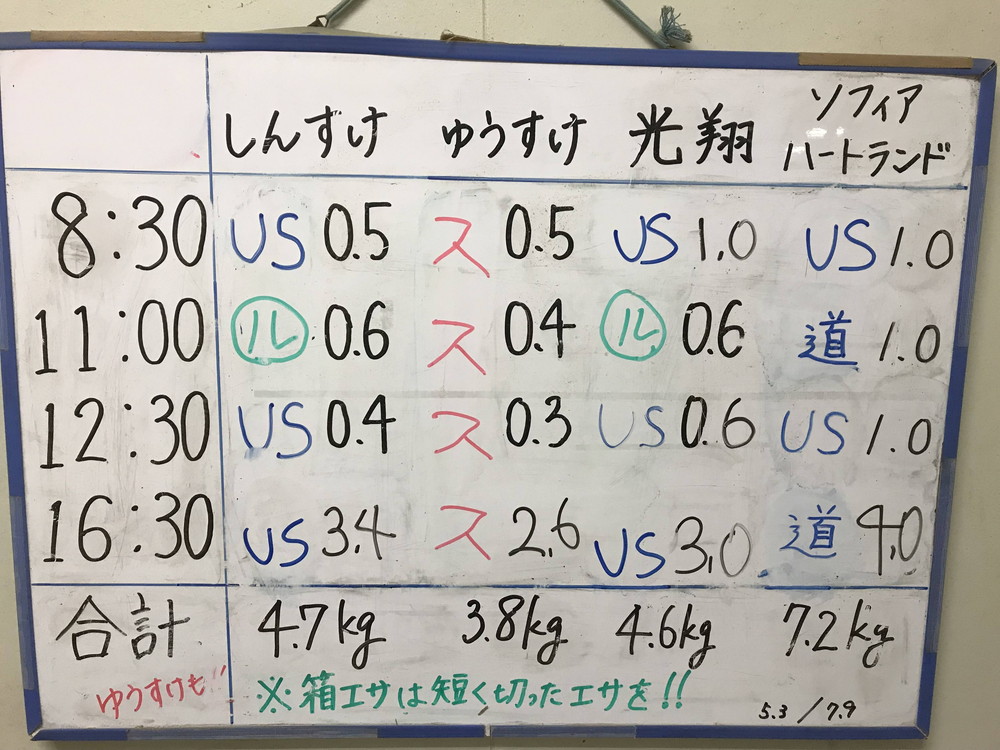 しんすけ ゆうすけ 光翔 ソフィア ハートランド
8:30 US 0.5 ス 0.5 US 1.0 US 1.0
11:00 ル 0.6 ス 0.4 ル 0.6 道 1.0
12:30 US 0.4 ス 0.3 US 0.6 US 1.0
16:30 US 3.4 ス 2.6 US 3.0 道 4.0
合計 4.7kg 3.8kg 4.6kg 7.2kg
ゆうすけも" ※箱エサは短く切ったエサを!!
5.3/7.9